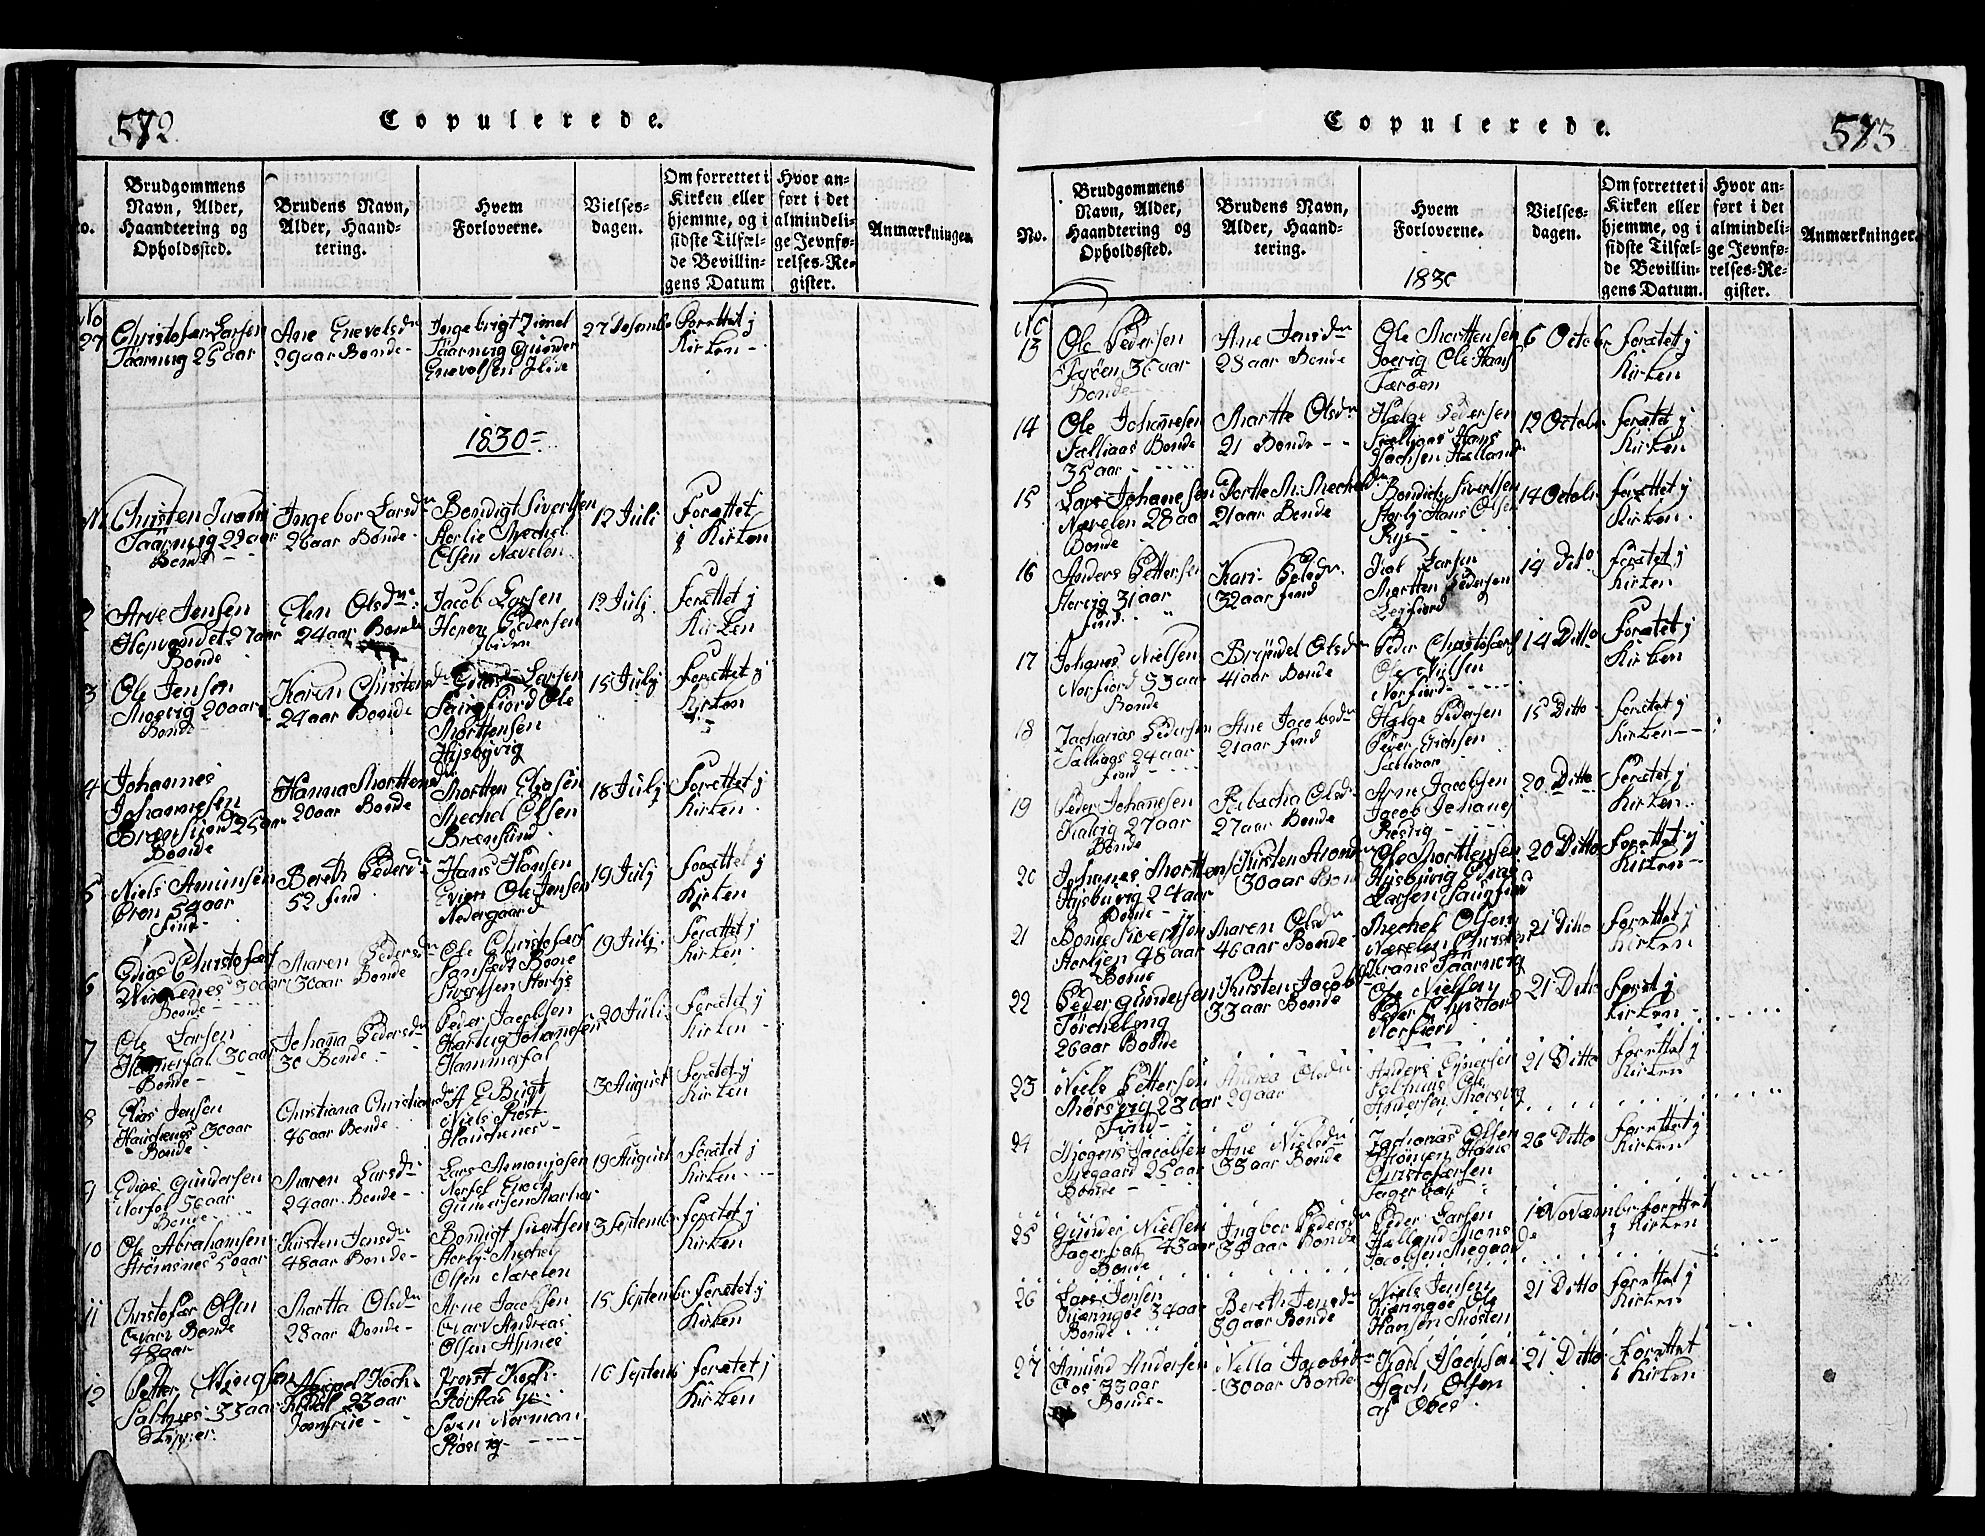 572
Copulerede.
No.
Brudgommens
Navn, Alder,
Haandtering og
Opholdssted.
Brudens Navn,
Alder, Haand-
tering.
Hvem
Forloverne.
Vielses-
dagen.
Om forrettet i
Kirken eller
hjemme, og i
sidste Tilfæl-
de Bevillin-
gens Datum
Hvor an-
ført i det
almindeli-
ge Jevnfø-
relses-Re-
gister.
Anmærkninger.
No
27
Christofer Larsen
Taarnvig 25 aar
Ane Enevolsdr
29 aar Bonde
Ingebrigt
Taarnvig Gunder
Enevolsen
27 Desember
Forættet j
Kirken
1830
Christen
Taarnvig 29 aar
Bonde
Ingebor Larsdr
26 aar Bonde
Bendigt Sivertsen
Storlie Mechel
Olsen Nævelen
12 Juli
Forættet
j Kirken
2
Arve Jensen
Hopvandet 27 aar
Bonde
Elen Olsdr
24 aar Bonde
Jacob Larsen
Hopen Pedersen
ibiden
12 Julj
Forættet j
Kirken
3
Ole Jensen
Morvig 20 aar
Bonde
Karen Christensdr
24 aar Bonde
Larsen
Saugfiord Ole
Morttensen
Hysbyvig
15 Julj
Forættet j
Kirken
4
Johannes
Johannesen
25 aar
Bonde
Hanna Morttensdr
20 aar Bonde
Mortten Eliasen
Mechel Olsen
Brænsund
18 Julj
Forættet j
Kirken
5
Niels Amunsen
54 aar
Find
Bereth Pedersdr
52 find
Hans Hansen
Ole Jensen
Nedergaard
19 Julj
forættet j
Kirken
6
Elias Christofers
30 aar
Bonde
Maren Pedersdr
30 aar Bonde
Ole Christofers
Bone
Sivertsen Storlje
19 Julj
forættet j
Kirken
7
Ole Larsen
Hamerfal 30 aar
Bonde
Johana Pedersdr
30 Bonde
Peder Jacobsen
Hartvig Johansen
Hammafal
20 Juli
Forætet j
Kirken
8
Elias Jensen
Hauchenes 30 aar
Bonde
Christiana Christiansdr
46 aar Bonde
A E Bugt
Niels Røst
Hauchenes
3 August
forætet j
Kirken
9
Elias Gundersen
Norfol 30 aar
Bonde
Maren Larsdr
24 aar Bonde
Lars
Norfol
Gundersen
19 August
forætet j
Kirken
10
Ole Abrahamsen
Strømsnes 50 aar
Kirsten Jensdr
48 aar Bonde
Bendigt Sivertsen
Storlj Mechel
Olsen Nævelen
3 September
forætet j
Kirken
11
Christofær Olsen
Evarv Bonde
48 aar
Martta Olsdr
28 aar Bonde
Arne Jacobsen
Evarv Andreas
Olsen Asnnes
15 September
forætet j
Kirken
12
Petter
Saltnes 33 aar
Skipper
Koch
23 aar
Jomfrue
Prost Koch
Rørstad
Sven Norman
Røsvig
16 September
forætet j
Kirken
573
Copulerede.
No.
Brudgommens
Navn, Alder,
Haandtering og
Opholdssted.
Brudens Navn,
Alder, Haand-
tering.
Hvem
Forloverne.
1830
Vielses-
dagen.
Om forrettet i
Kirken eller
hjemme, og i
sidste Tilfæl-
de Bevillin-
gens Datum.
Hvor an-
ført i det
almindeli-
ge Jevnfø-
relses-Re-
gister.
Anmærkninger.
No
13
Ole Pedersen
Farøen 36 aar
Bonde
Ane Jensdr
28 aar Bonde
Ole Morttensen
Joervig Ole Hans
Færøen
6 October
forætet j
Kirken
14
Ole Johannesen
Fælliaas Bonde
35 aar
Martte Olsdr
21 Bonde
Hælge Pedersen
Fælliaas Hans
Isachsen Hælland
12 October
forætet j
Kirken
15
Lars Johanesen
Nævelen 28 aar
Bonde
Dortte M: Mecheldr
21 aar Bonde
Bendict Sivertsen
Storlj Hans Olsen
Rys
14 October
forættet j
Kirken
16
Anders Pettersen
Storvig 31 aar
find
Kari
32 aar find
Larsen
Mortten Pedersen
Leyfiord
14 Dito
forætet j
Kirken
17
Johanes Nielsen
Norfiord 33 aar
Bonde
Brændel Olsdr
41 aar Bonde
Peder Christofærs
Ole Nielsen
Norfiord
14 Ditto
Forætet j
Kirken
18
Zacharias Pedersen
Fælliaas 24 aar
find
Ane Jacobsdr
21 aar find
Hælge Pedersen
Peder Erichsen
Fælliaas
15 Ditto
forætet j
Kirken
19
Peder Johanesen
Kalvig 27 aar
Bonde
Rebecha Olsdr
27 aar Bonde
Arne Jacobsen
Jacob Johanes
Røsvig
20 Ditto
Forætet j
Kirken
20
Johannes Mortten
Hysbyvig 24 aar
Bonde
Kirsten
30 aar Bonde
Ole Morttensen
Hysbyvig
Larsen Saugfiord
20 Ditto
forættet j
Kirken
21
Bone Sivertsen
Storlien 48 aar
Bonde
Maren Olsdr
46 aar Bonde
Mechel Olsen
Nævelen Christen
Taarnvig
21 Ditto
forættet j
Kirken
22
Peder Gundersen
Torchelong
26 aar Bonde
Kirsten Jacobsdr
33 aar Bonde
Ole Nielsen
Peder Christof
Norfiord
21 Ditto
forætet j
Kirken
23
Niels Pettersen
Mørsvig 23 aar
Find
Andrea Olsdr
29 aar
Anders
Ole
Andersen Mørsvig
21 Ditto
forættet j
Kirken
24
Mogens Jacobsen
Megaard 25 aar
Bonde
Ane Nielsdr
33 aar Bonde
Zacharias Olsen
Hans
Christofærsen
Fagerbak
26 Ditto
forættet j
Kirken
25
Gunder Nielsen
Fagerbak 43 aar
Bonde
Ingbor Pedersdr
38 aar Bonde
Peder Larsen
Hælland Mons
Jacobsen Megaard
1 November
forættet
j Kirken
26
Lars Jensen
34 aar
Bonde
Bereth Jensdr
39 aar Bonde
Niels Jensen
Ole
Hansen Mosten
21 Ditto
forættet j
Kirken
27
Amund Andersen
33 aar
Bonde
Nella Jacobsdr
30 aar Bonde
Karl Isachsen
Isach Olsen
af
21 Ditto
forættet
i Kirken